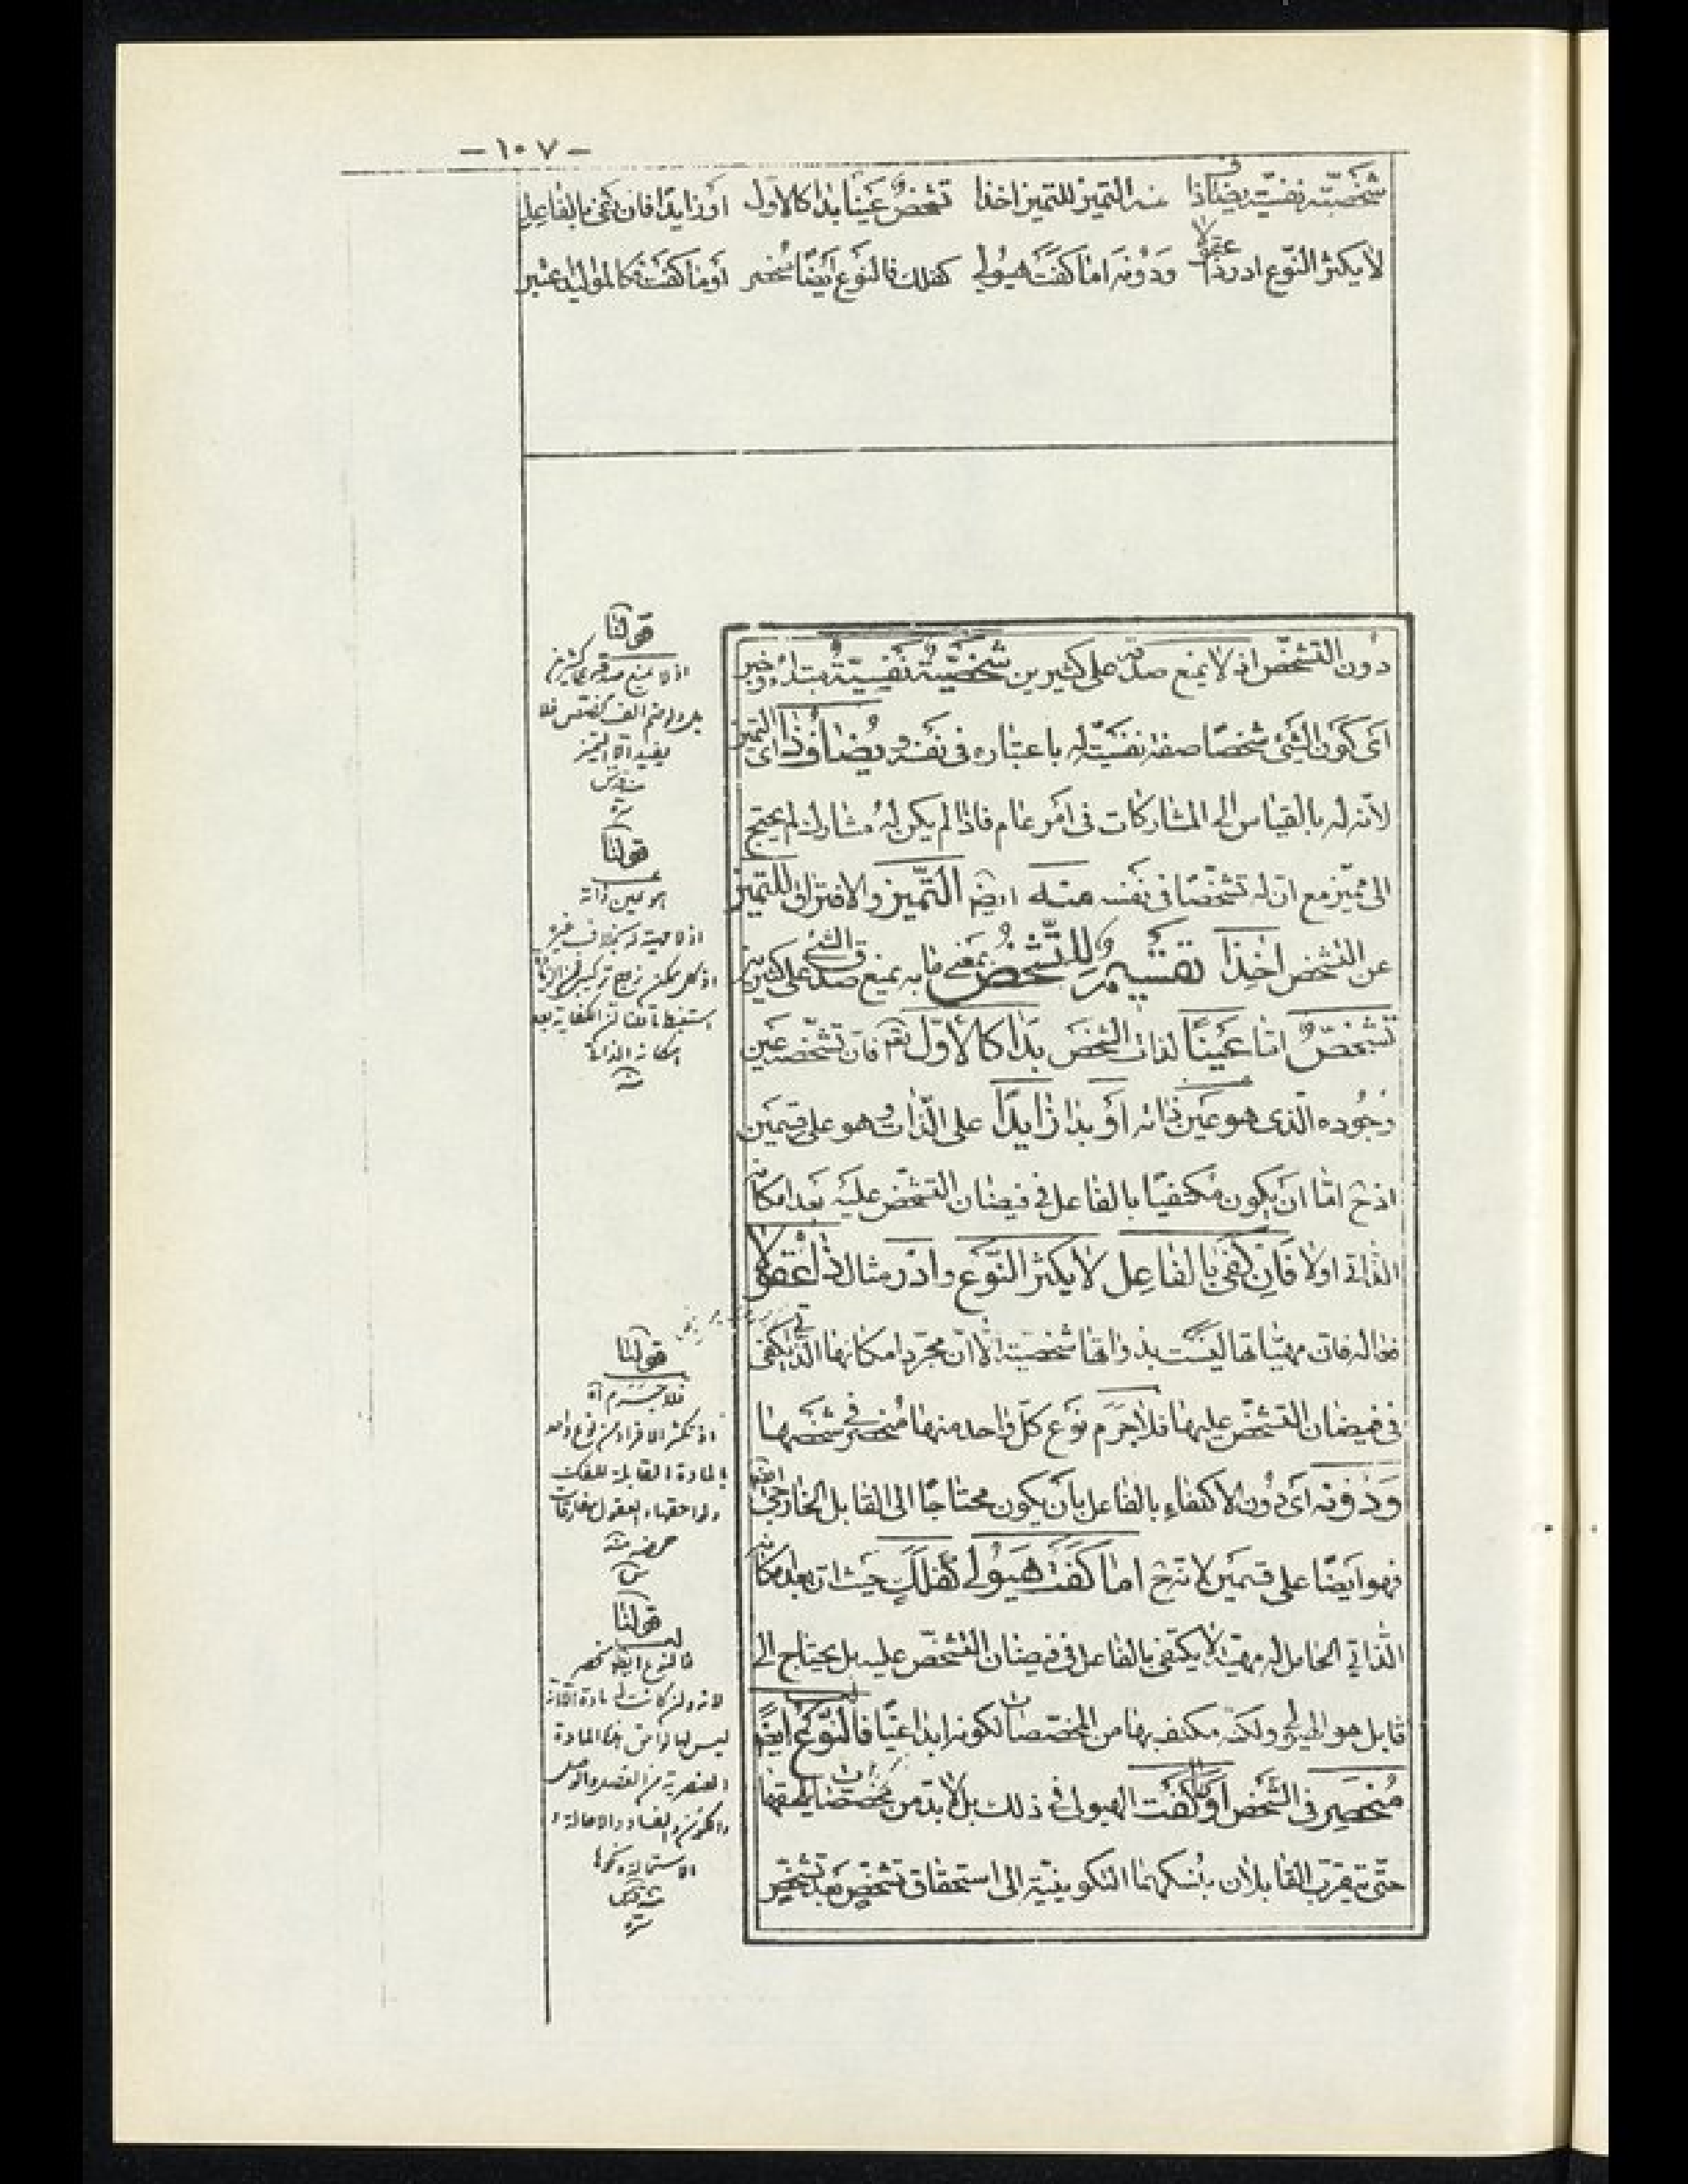 - ١٠٧ -
شخصيّته نفسيّة يضاف ذا منه التميز للتميز اخذا تشخص عينا بدا كالاول او زايدا فان كفى بالفاعل
لا يكثر النّوع ادر ذا عقولا ودونه اما كفت هيولى كفلك فالنوع ايضا منحصر او ما كفت فكالمواليد اعتبر
دون التشخّص اذ لا يمنع صدقه على كثيرين شخصيّة نفسيّة مبتداء وخبر
اى كون الشىء شخصا صفة نفسيّة له باعتباره فى نفسه و يضاف ذا اى التميز
لانّه له بالقياس الى المشاركات فى امر عام فاذا لم يكن له مشارك لم يحتج
الى مميّز مع انّ له تشخّصا فى نفسه منه ايضا التّميز والافتراق للتميز
عن التشخص اخذا تقسيم للتّشخص بمعنى ما به يمنع صدق الشىء على كثيرين
تشخّص امّا عينا لذات الشخص بدا كالاوّل تعم فان تشخّصه عين
وجوده الّذى هو عين ذاته او بدا زايدا على الذّات وهو على قسمين
اذ ح امّا ان يكون مكتفيا بالفاعل فى فيضان التشخّص عليه بعد امكانه
الذاتى اولا فان كفى بالفاعل لا يكثر النّوع وادر مثال ذا عقولا
فعاله فانّ مهيّاتها ليست بذواتها شخصيّة الّا انّ مجرّد امكانها الذاتى يكفى
فى فيضان التشخّص عليها فلا جرم نوع كلّ واحد منها منحصر فى شخصها
ودونه اى دون الاكتفاء بالفاعل بان يكون محتاجا الى القابل الخارجى ايضا
فهو ايضا على قسمين لانه ح اما كفت هيولى كفلك حيث انّ بعد امكانه
الذاتى الحامل له مهيّته لا يكتفى بالفاعل فى فيضان التشخّص عليه بل يحتاج الى
قابل هو الهيولى ولكنّه مكتف بها من المخصّصات لكونه ابداعيّا فالنّوع ايضا
منحصر فى الشّخص او ما كفت الهيولى فى ذلك بل لا بد من مخصصات يلحقها
حتّى تقرب القابلان بنسكهما التكوينيّة الى استحقاق تشخّص بعد تشخّص
قولنا
اذ لا يمنع صدقه على كثيرين
بل ولو ضم الف مخصص فلا
يفيد الا التميز
منه قدس
سره
قولنا
هو عين ذاته
اذ لا مهية له بخلاف غيره
اذ كل ممكن زوج تركيبى
الكفاية بعد
امكانه الذاتى
منه
قولنا
فلا جرم اه
اذ تكثر الافراد من نوع واحد
بالمادة القابلة للفك
ولواحقها والعقول مفارقات
محضة منه
قولنا
فالنوع ايضا منحصر
لانه وان كانت له مادة الا انه
ليس لها لواحق هذا المادة
العنصرية من الفصل والوصل
والكون والفساد و
الاستحالة ونحوها
منه قدس
سره